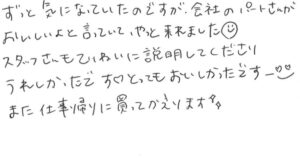 ずっと気になっていたのですが、会社のパートさんが
おいしいよと言っていて、やっと来れました☺
スタッフさんもていねいに説明してくださり
うれしかったです♡とってもおいしかったですー♡
また仕事帰りに買ってかえります✨